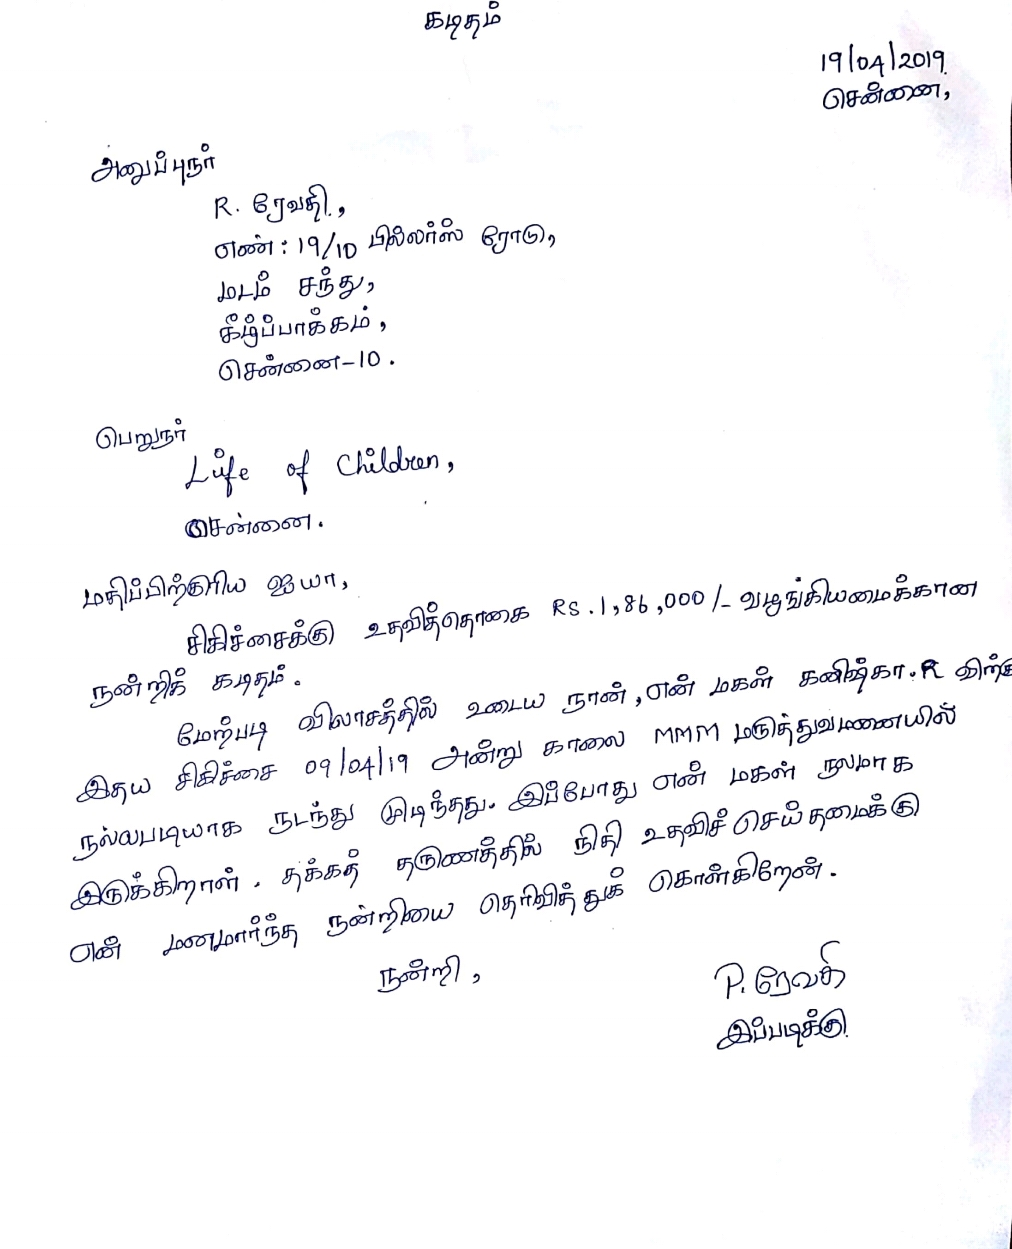 கடிதம்
19/04/2019
சென்னை,
அனுப்புநர்
R. ரேவதி,
எண்: 19/10 மில்லர்ஸ் ரோடு,
மடம் சந்து,
கீழ்ப்பாக்கம்,
சென்னை-10.
பெறுநர்
Life of Children,
சென்னை.
மதிப்பிற்குரிய ஐயா,
சிகிச்சைக்கு உதவித்தொகை RS.1,86,000/- வழங்கியமைக்கான
நன்றிக் கடிதம்.
மேற்படி விலாசத்தில் உடைய நான், என் மகள் கனிஷ்கா.R
இதய சிகிச்சை 09/04/19 அன்று காலை MMM மருத்துவமனையில்
நல்லபடியாக நடந்து முடிந்தது. இப்போது என் மகள் நலமாக
இருக்கிறாள். தக்கத் தருணத்தில் நிதி உதவிச் செய்தமைக்கு
என் மனமார்ந்த நன்றியை தெரிவித்துக் கொள்கிறேன்.
நன்றி,
P. ரேவதி
இப்படிக்கு